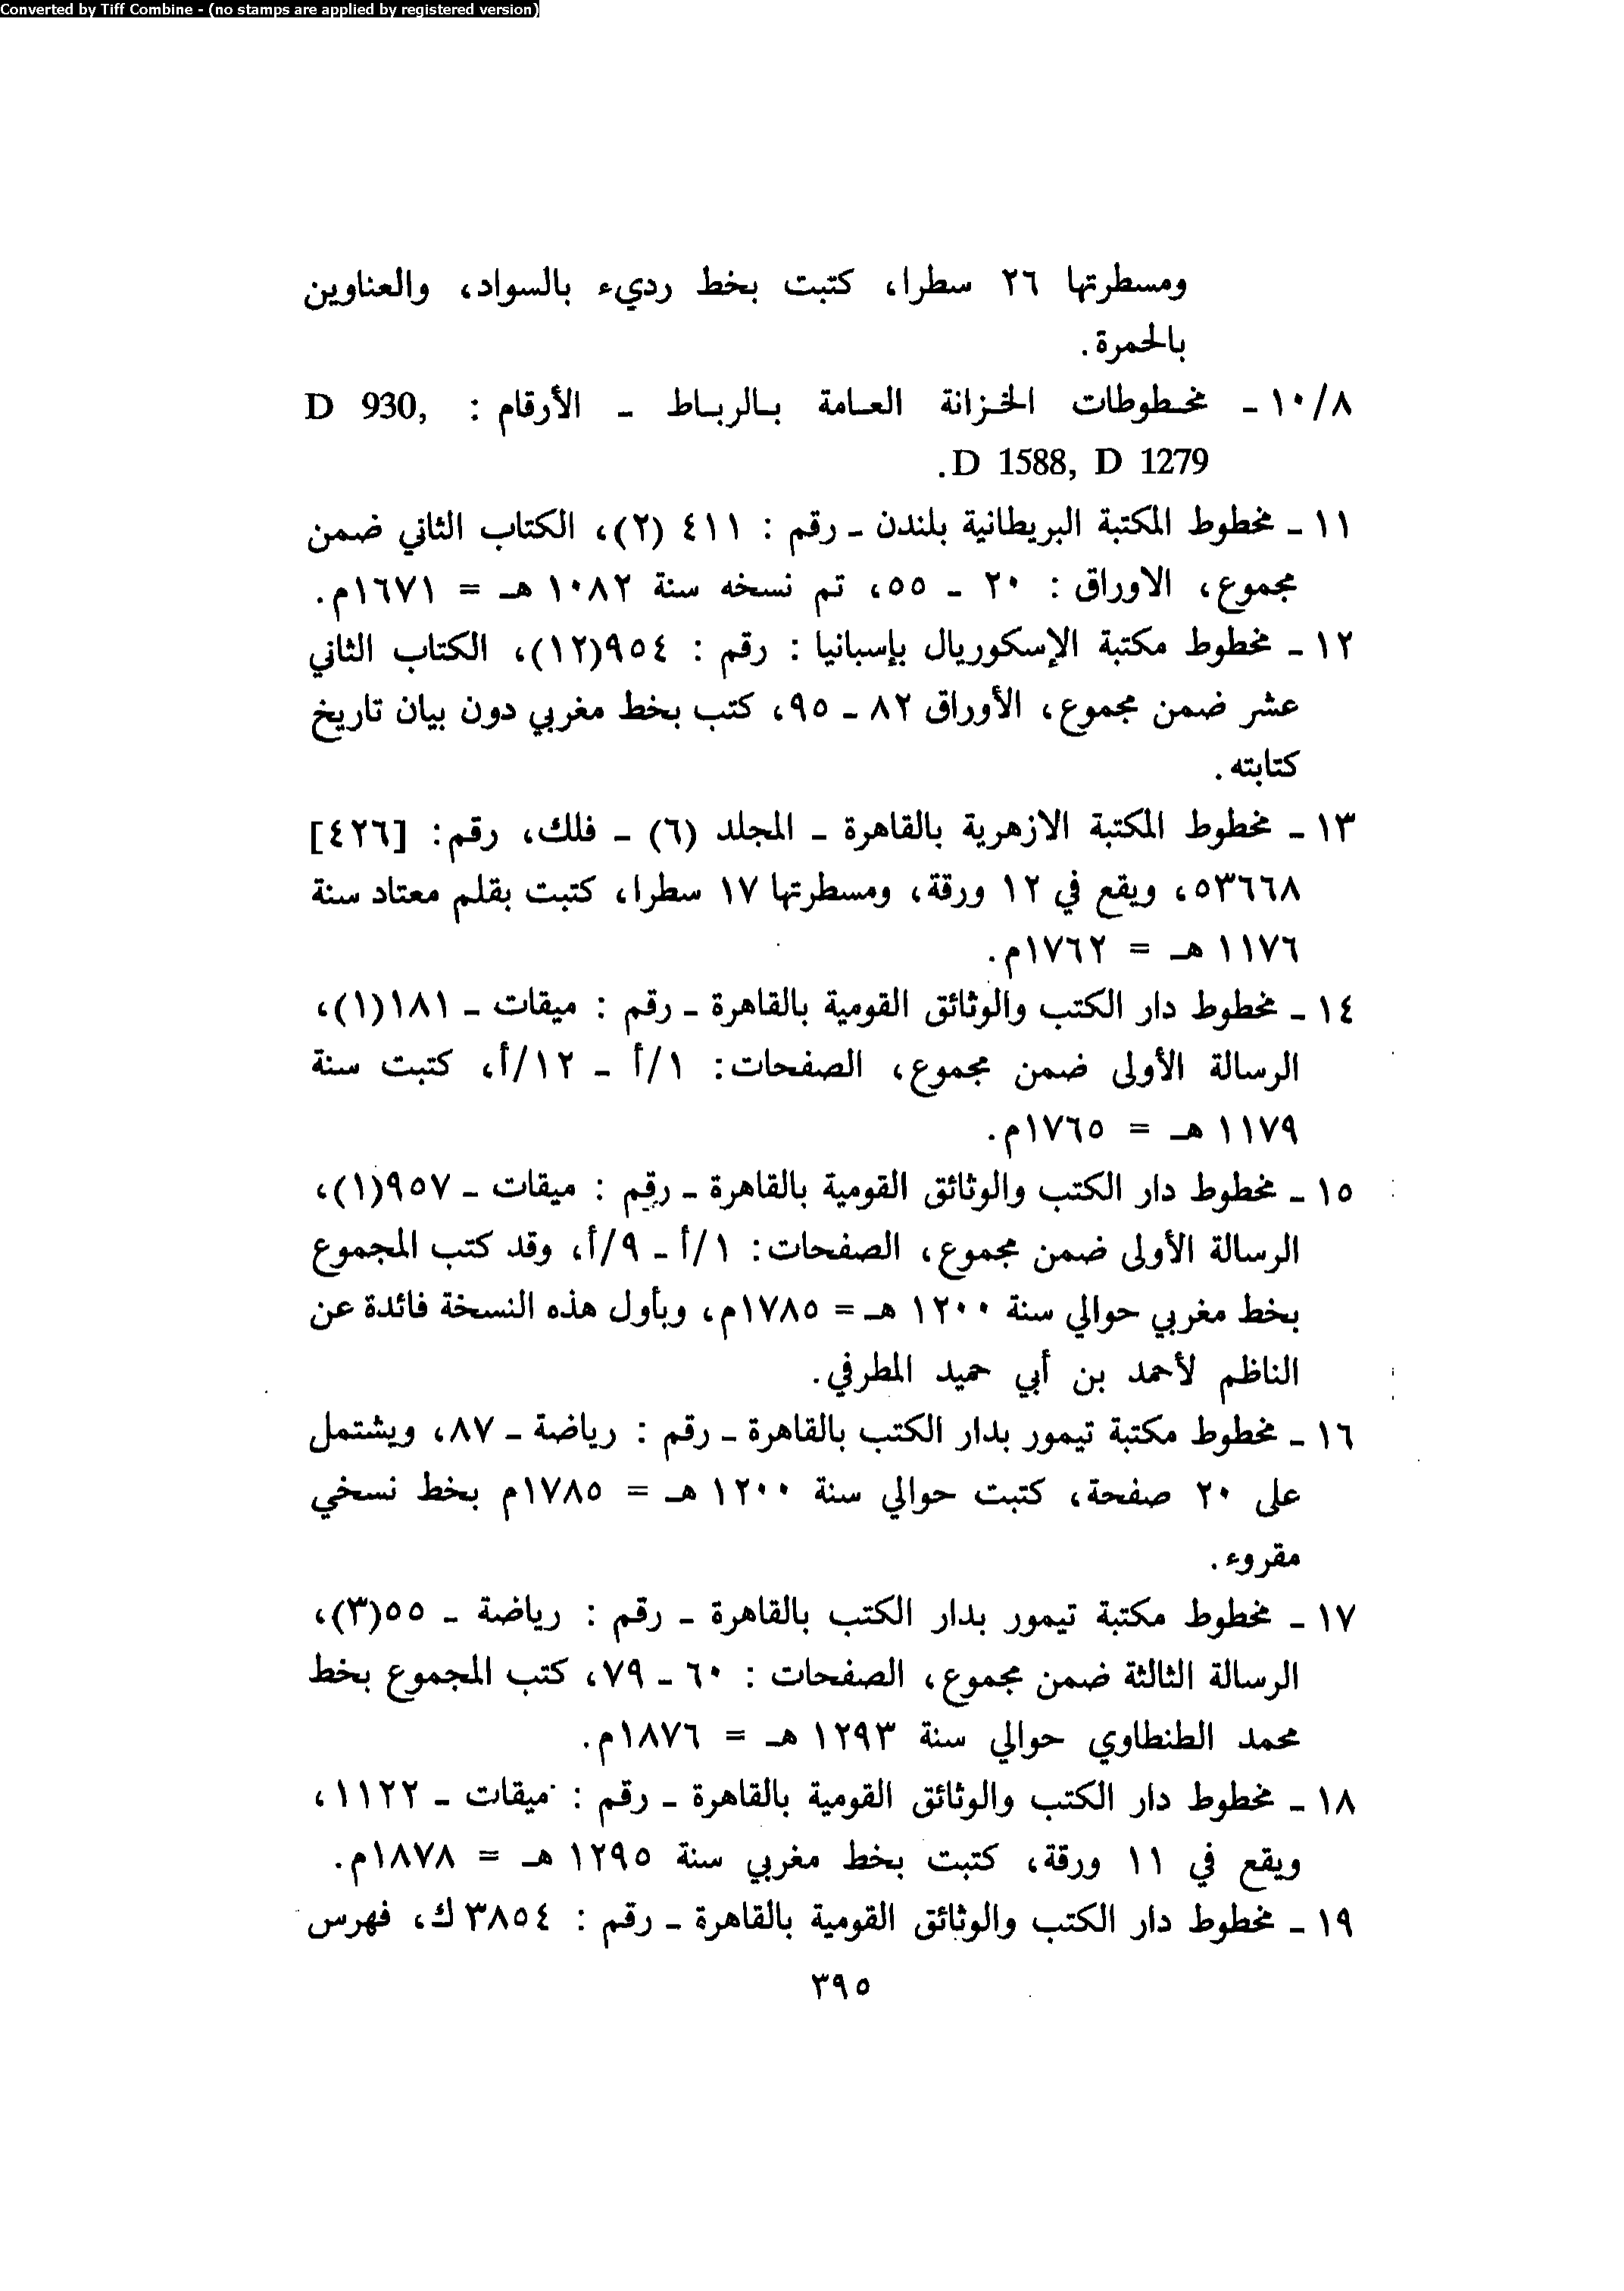 Converted by Tiff Combine - (no stamps are applied by registered version)
ومسطرتها ٢٦ سطرا، كتبت بخط رديء بالسواد، والعناوين
بالحمرة.
١٠/٨ - مخطوطات الخزانة العامة بالرباط - الأرقام : D 930,
D 1588, D 1279.
١١ - مخطوط المكتبة البريطانية بلندن - رقم : ٤١١ (٢)، الكتاب الثاني ضمن
مجموع، الاوراق : ٢٠ - ٥٥، تم نسخه سنة ١٠٨٢ هـ = ١٦٧١م.
١٢ - مخطوط مكتبة الإسكوريال بإسبانيا : رقم : ٩٥٤(١٢)، الكتاب الثاني
عشر ضمن مجموع، الأوراق ٨٢ - ٩٥، كتب بخط مغربي دون بيان تاريخ
كتابته.
١٣ - مخطوط المكتبة الازهرية بالقاهرة - المجلد (٦) - فلك، رقم: [٤٢٦]
٥٣٦٦٨، ويقع في ١٢ ورقة، ومسطرتها ١٧ سطرا، كتبت بقلم معتاد سنة
١١٧٦ هـ = ١٧٦٢م.
١٤ - مخطوط دار الكتب والوثائق القومية بالقاهرة - رقم : ميقات - ١٨١(١)،
الرسالة الأولى ضمن مجموع، الصفحات: ١/أ - ١٢/أ، كتبت سنة
١١٧٩ هـ = ١٧٦٥م.
١٥ - مخطوط دار الكتب والوثائق القومية بالقاهرة - رقم : ميقات - ٩٥٧(١)،
الرسالة الأولى ضمن مجموع، الصفحات: ١/أ - ٩/أ، وقد كتب المجموع
بخط مغربي حوالي سنة ١٢٠٠ هـ = ١٧٨٥م، وبأول هذه النسخة فائدة عن
الناظم لأحمد بن أبي حميد المطرفي.
١٦ - مخطوط مكتبة تيمور بدار الكتب بالقاهرة - رقم : رياضة - ٨٧، ويشتمل
على ٢٠ صفحة، كتبت حوالي سنة ١٢٠٠ هـ = ١٧٨٥م بخط نسخي
مقروء.
١٧ - مخطوط مكتبة تيمور بدار الكتب بالقاهرة - رقم : رياضة - ٥٥(٣)،
الرسالة الثالثة ضمن مجموع، الصفحات : ٦٠ - ٧٩، كتب المجموع بخط
محمد الطنطاوي حوالي سنة ١٢٩٣ هـ = ١٨٧٦م.
١٨ - مخطوط دار الكتب والوثائق القومية بالقاهرة - رقم : ميقات - ١١٢٢،
ويقع في ١١ ورقة، كتبت بخط مغربي سنة ١٢٩٥ هـ = ١٨٧٨م.
١٩ - مخطوط دار الكتب والوثائق القومية بالقاهرة - رقم : ٣٨٥٤ك، فهرس
٣٩٥